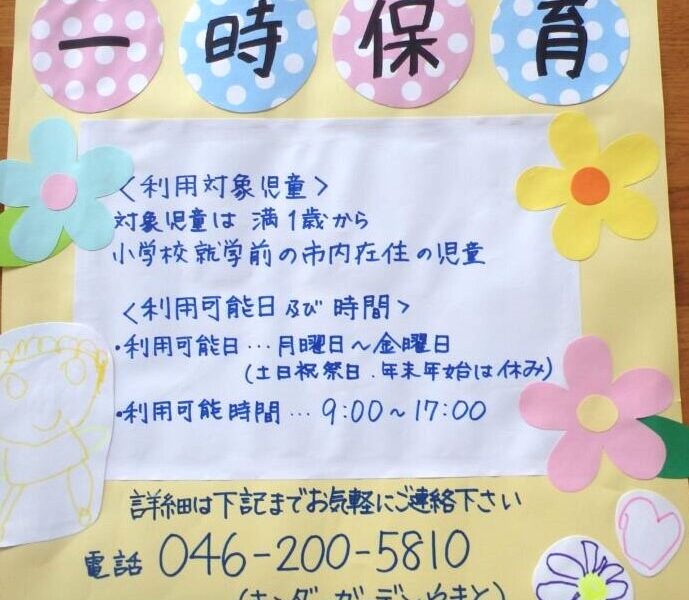 一時保育
<利用対象児童>
対象児童は 満1歳から
小学校就学前の市内在住の児童
<利用可能日及び時間>
・利用可能日…月曜日~金曜日
(土日祝祭日.年末年始は休み)
・利用可能時間…9:00~17:00
詳細は下記までお気軽にご連絡下さい
電話 046-200-5810